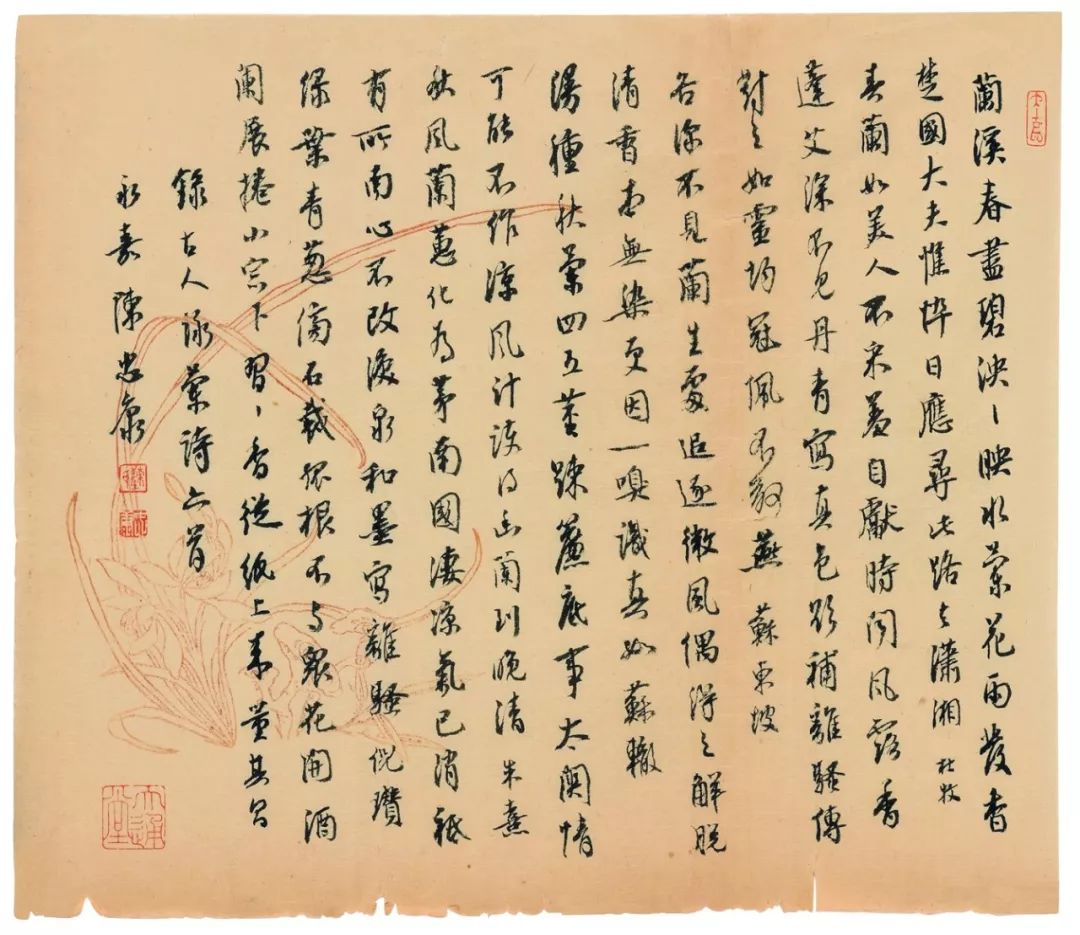 蘭溪春盡碧泱〻映水蘭花雨發香
楚國大夫憔悴日應尋此路去瀟湘 杜牧
春蘭如美人不采羞自獻時聞風露香
蓬艾深不見丹青寫真色欲補離騷傳
對之如靈均冠佩不敢燕 蘇東坡
谷深不見蘭生處追逐微風偶得之解脫
清香本無染更因一嗅識真如 蘇轍
漫種秋蘭四五莖疎簾底事太關情
可能不作涼風計護得幽蘭到晚清 朱熹
秋風蘭蕙化為茅南國淒涼氣已消祗
有所南心不改淚泉和墨寫離騷 倪瓚
綠葉青葱傍石栽孤根不與衆花開酒
闌展捲小窗下習〻香從紙上來 董其昌
錄古人詠蘭詩六首
永嘉 陳忠康